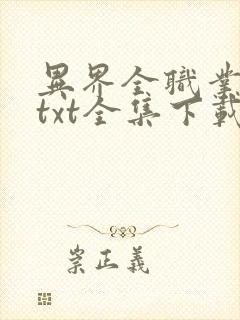 異界全職業
txt全集下載
崇正義